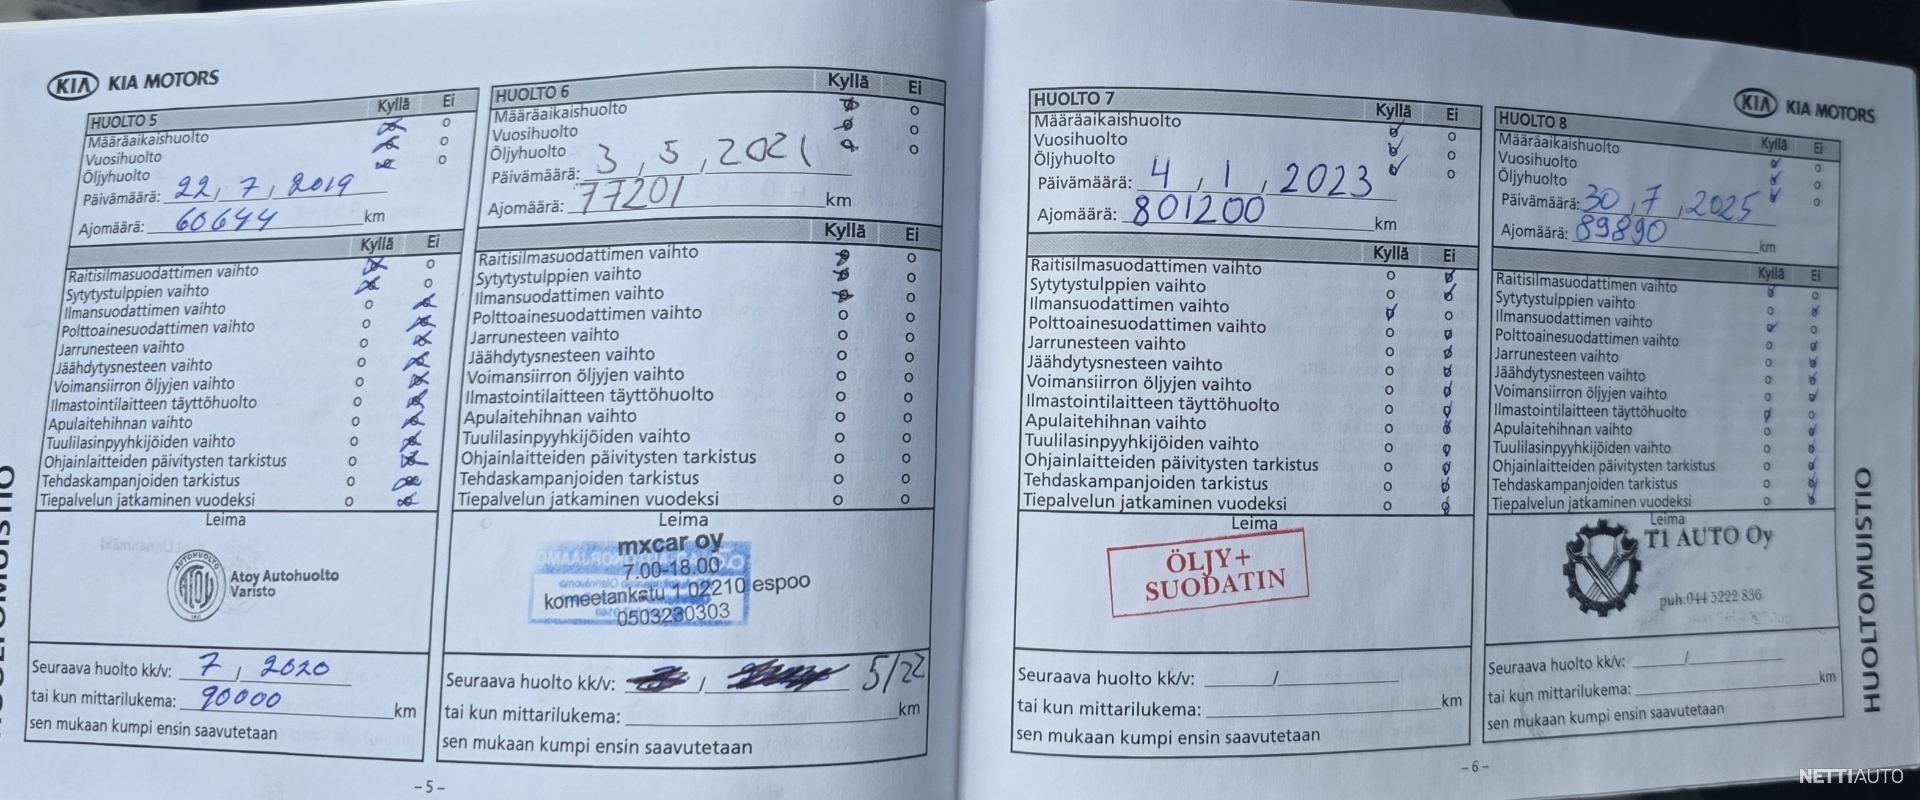 KIA KIA MOTORS
HUOLTO 5 Kyllä Ei
Määräaikaishuolto
Vuosihuolto
Öljyhuolto
Päivämäärä: 22, 7, 2019
Ajomäärä: 60644 km
Kyllä Ei
Raitisilmasuodattimen vaihto
Sytytystulppien vaihto
Ilmansuodattimen vaihto
Polttoainesuodattimen vaihto
Jarrunesteen vaihto
Jäähdytysnesteen vaihto
Voimansiirron öljyjen vaihto
Ilmastointilaitteen täyttöhuolto
Apulaitehihnan vaihto
Tuulilasinpyyhkijöiden vaihto
Ohjainlaitteiden päivitysten tarkistus
Tehdaskampanjoiden tarkistus
Tiepalvelun jatkaminen vuodeksi
Leima
AUTOHUOLTO
ATOY
Atoy Autohuolto
Varisto
Seuraava huolto kk/v: 7, 2020
tai kun mittarilukema: 90000 km
sen mukaan kumpi ensin saavutetaan
- 5 -
HUOLTO 6 Kyllä Ei
Määräaikaishuolto
Vuosihuolto
Öljyhuolto
Päivämäärä: 3, 5, 2021
Ajomäärä: 77201 km
Kyllä Ei
Raitisilmasuodattimen vaihto
Sytytystulppien vaihto
Ilmansuodattimen vaihto
Polttoainesuodattimen vaihto
Jarrunesteen vaihto
Jäähdytysnesteen vaihto
Voimansiirron öljyjen vaihto
Ilmastointilaitteen täyttöhuolto
Apulaitehihnan vaihto
Tuulilasinpyyhkijöiden vaihto
Ohjainlaitteiden päivitysten tarkistus
Tehdaskampanjoiden tarkistus
Tiepalvelun jatkaminen vuodeksi
Leima
mxcar oy
7.00-18.00
komeetankatu 1 02210 espoo
0503230303
Seuraava huolto kk/v: / 5/22
tai kun mittarilukema: km
sen mukaan kumpi ensin saavutetaan
HUOLTO 7 Kyllä Ei
Määräaikaishuolto
Vuosihuolto
Öljyhuolto
Päivämäärä: 4, 1, 2023
Ajomäärä: 801200 km
Kyllä Ei
Raitisilmasuodattimen vaihto
Sytytystulppien vaihto
Ilmansuodattimen vaihto
Polttoainesuodattimen vaihto
Jarrunesteen vaihto
Jäähdytysnesteen vaihto
Voimansiirron öljyjen vaihto
Ilmastointilaitteen täyttöhuolto
Apulaitehihnan vaihto
Tuulilasinpyyhkijöiden vaihto
Ohjainlaitteiden päivitysten tarkistus
Tehdaskampanjoiden tarkistus
Tiepalvelun jatkaminen vuodeksi
Leima
ÖLJY+
SUODATIN
Seuraava huolto kk/v: /
tai kun mittarilukema: km
sen mukaan kumpi ensin saavutetaan
- 6 -
KIA KIA MOTORS
HUOLTO 8 Kyllä Ei
Määräaikaishuolto
Vuosihuolto
Öljyhuolto
Päivämäärä: 30, 7, 2025
Ajomäärä: 89890 km
Kyllä Ei
Raitisilmasuodattimen vaihto
Sytytystulppien vaihto
Ilmansuodattimen vaihto
Polttoainesuodattimen vaihto
Jarrunesteen vaihto
Jäähdytysnesteen vaihto
Voimansiirron öljyjen vaihto
Ilmastointilaitteen täyttöhuolto
Apulaitehihnan vaihto
Tuulilasinpyyhkijöiden vaihto
Ohjainlaitteiden päivitysten tarkistus
Tehdaskampanjoiden tarkistus
Tiepalvelun jatkaminen vuodeksi
Leima
T1 AUTO Oy
puh:044 5222 836
Seuraava huolto kk/v: /
tai kun mittarilukema: km
sen mukaan kumpi ensin saavutetaan
HUOLTOMUISTIO
NETTIAUTO